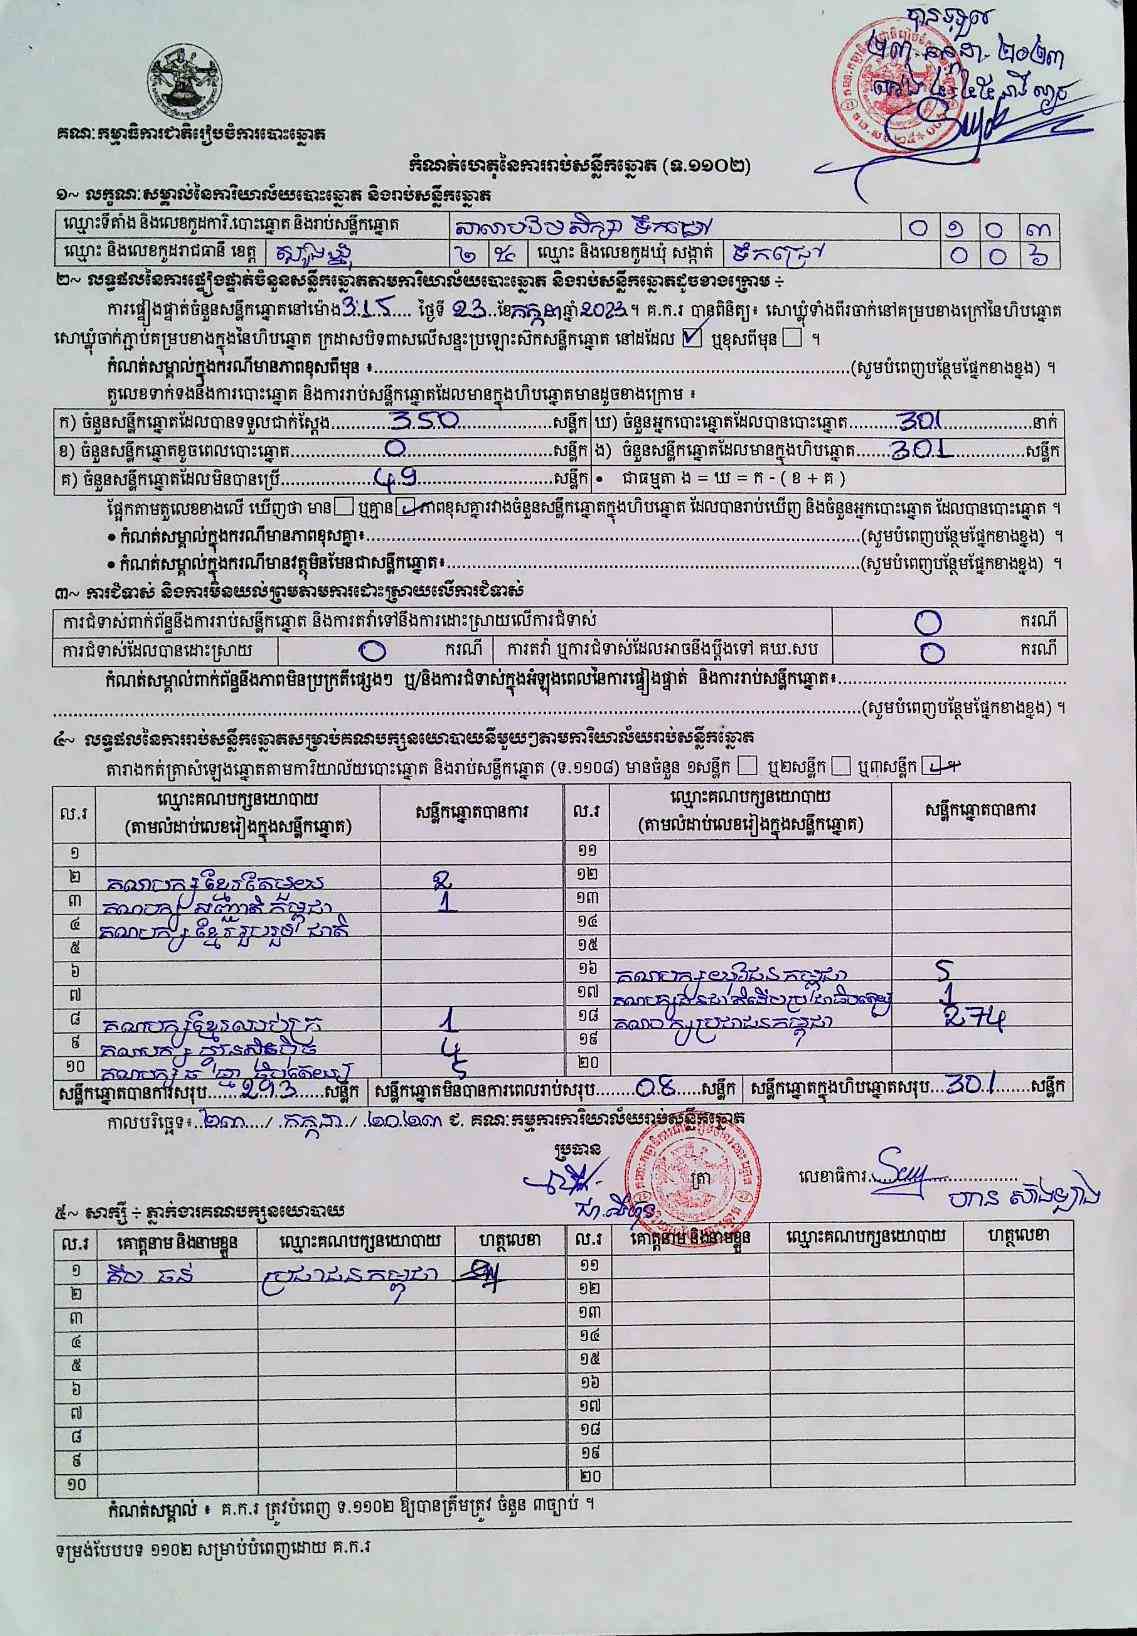 បានចូល
២៣-កក្កដា-២០២៣
គណៈកម្មាធិការជាតិរៀបចំការបោះឆ្នោត
កំណត់ហេតុនៃការរាប់សន្លឹកឆ្នោត (ទ.១១០២)
១~ លក្ខណៈសម្គាល់នៃការិយាល័យបោះឆ្នោត និងរាប់សន្លឹកឆ្នោត
ឈ្មោះទីតាំង និងលេខកូដការិ.បោះឆ្នោត និងរាប់សន្លឹកឆ្នោត សាលាបឋមសិក្សា ទឹកជ្រៅ ០ ១ ០ ៣
ឈ្មោះ និងលេខកូដរាជធានី ខេត្ត ត្បូងឃ្មុំ ២ ៥ ឈ្មោះ និងលេខកូដឃុំ សង្កាត់ ទឹកជ្រៅ ០ ០ ៦
២~ លទ្ធផលនៃការផ្ទៀងផ្ទាត់ចំនួនសន្លឹកឆ្នោតតាមការិយាល័យបោះឆ្នោត និងរាប់សន្លឹកឆ្នោតដូចខាងក្រោម ÷
ការផ្ទៀងផ្ទាត់ចំនួនសន្លឹកឆ្នោតនៅម៉ោង 3:15 ថ្ងៃទី 23 ខែ កក្កដា ឆ្នាំ 2023 ។ គ.ក.រ បានពិនិត្យ៖ សោឃ្លុំទាំងពីរចាក់នៅគម្របខាងក្រៅនៃហិបឆ្នោត
សោឃ្លុំចាក់ភ្ជាប់គម្របខាងក្នុងនៃហិបឆ្នោត ក្រដាសបិទពាសលើសន្ទះប្រឡោះស៊កសន្លឹកឆ្នោត នៅដដែល ☑ ឬខុសពីមុន ☐ ។
កំណត់សម្គាល់ក្នុងករណីមានភាពខុសពីមុន ៖ (សូមបំពេញបន្ថែមផ្នែកខាងខ្នង) ។
តួលេខទាក់ទងនឹងការបោះឆ្នោត និងការរាប់សន្លឹកឆ្នោតដែលមានក្នុងហិបឆ្នោតមានដូចខាងក្រោម ៖
ក) ចំនួនសន្លឹកឆ្នោតដែលបានទទួលជាក់ស្តែង 350 សន្លឹក ឃ) ចំនួនអ្នកបោះឆ្នោតដែលបានបោះឆ្នោត 301 នាក់
ខ) ចំនួនសន្លឹកឆ្នោតខូចពេលបោះឆ្នោត 0 សន្លឹក ង) ចំនួនសន្លឹកឆ្នោតដែលមានក្នុងហិបឆ្នោត 301 សន្លឹក
គ) ចំនួនសន្លឹកឆ្នោតដែលមិនបានប្រើ 49 សន្លឹក • ជាធម្មតា ង = ឃ = ក - ( ខ + គ )
ផ្អែកតាមតួលេខខាងលើ ឃើញថា មាន ☐ ឬគ្មាន ☑ ភាពខុសគ្នារវាងចំនួនសន្លឹកឆ្នោតក្នុងហិបឆ្នោត ដែលបានរាប់ឃើញ និងចំនួនអ្នកបោះឆ្នោត ដែលបានបោះឆ្នោត ។
• កំណត់សម្គាល់ក្នុងករណីមានភាពខុសគ្នា៖ (សូមបំពេញបន្ថែមផ្នែកខាងខ្នង) ។
• កំណត់សម្គាល់ក្នុងករណីមានវត្ថុមិនមែនជាសន្លឹកឆ្នោត៖ (សូមបំពេញបន្ថែមផ្នែកខាងខ្នង) ។
៣~ ការជំទាស់ និងការមិនយល់ព្រមតាមការដោះស្រាយលើការជំទាស់
ការជំទាស់ពាក់ព័ន្ធនឹងការរាប់សន្លឹកឆ្នោត និងការតវ៉ាទៅនឹងការដោះស្រាយលើការជំទាស់ 0 ករណី
ការជំទាស់ដែលបានដោះស្រាយ 0 ករណី ការតវ៉ា ឬការជំទាស់ដែលអាចនឹងប្តឹងទៅ គឃ.សប 0 ករណី
កំណត់សម្គាល់ពាក់ព័ន្ធនឹងភាពមិនប្រក្រតីផ្សេងៗ ឬ/និងការជំទាស់ក្នុងអំឡុងពេលនៃការផ្ទៀងផ្ទាត់ និងការរាប់សន្លឹកឆ្នោត៖
(សូមបំពេញបន្ថែមផ្នែកខាងខ្នង) ។
៤~ លទ្ធផលនៃការរាប់សន្លឹកឆ្នោតសម្រាប់គណបក្សនយោបាយនីមួយៗតាមការិយាល័យរាប់សន្លឹកឆ្នោត
តារាងកត់ត្រាសំឡេងឆ្នោតតាមការិយាល័យបោះឆ្នោត និងរាប់សន្លឹកឆ្នោត (ទ.១១០៨) មានចំនួន ១សន្លឹក ☐ ឬ២សន្លឹក ☐ ឬ៣សន្លឹក ☑ ។
ល.រ ឈ្មោះគណបក្សនយោបាយ (តាមលំដាប់លេខរៀងក្នុងសន្លឹកឆ្នោត) សន្លឹកឆ្នោតបានការ ល.រ ឈ្មោះគណបក្សនយោបាយ (តាមលំដាប់លេខរៀងក្នុងសន្លឹកឆ្នោត) សន្លឹកឆ្នោតបានការ
១ ១១
២ គណបក្សខ្មែរតែមួយ 2 ១២
៣ គណបក្ស សញ្ជាតិកម្ពុជា 1 ១៣
៤ គណបក្ស ខ្មែររួបរួមជាតិ ១៤
៥ ១៥
៦ ១៦ គណបក្សយុវជនកម្ពុជា 5
៧ ១៧ គណបក្សជនជាតិដើមប្រជាធិបតេយ្យ 1
៨ គណបក្សខ្មែរឈប់ក្រ 1 ១៨ គណបក្សប្រជាជនកម្ពុជា 274
៩ គណបក្ស ហ្វ៊ុនស៊ិនប៉ិច 4 ១៩
១០ 5 ២០
សន្លឹកឆ្នោតបានការសរុប 293 សន្លឹក សន្លឹកឆ្នោតមិនបានការពេលរាប់សរុប 08 សន្លឹក សន្លឹកឆ្នោតក្នុងហិបឆ្នោតសរុប 301 សន្លឹក
កាលបរិច្ឆេទ៖ ២៣ / កក្កដា / ២០២៣ ជ. គណៈកម្មការការិយាល័យរាប់សន្លឹកឆ្នោត
ប្រធាន
ត្រា
លេខាធិការ
៥~ សាក្សី ÷ ភ្នាក់ងារគណបក្សនយោបាយ
ល.រ គោត្តនាម និងនាមខ្លួន ឈ្មោះគណបក្សនយោបាយ ហត្ថលេខា ល.រ គោត្តនាម និងនាមខ្លួន ឈ្មោះគណបក្សនយោបាយ ហត្ថលេខា
១ ប្រជាជនកម្ពុជា ១១
២ ១២
៣ ១៣
៤ ១៤
៥ ១៥
៦ ១៦
៧ ១៧
៨ ១៨
៩ ១៩
១០ ២០
កំណត់សម្គាល់ ៖ គ.ក.រ ត្រូវបំពេញ ទ.១១០២ ឱ្យបានត្រឹមត្រូវ ចំនួន ៣ច្បាប់ ។
ទម្រង់បែបបទ ១១០២ សម្រាប់បំពេញដោយ គ.ក.រ